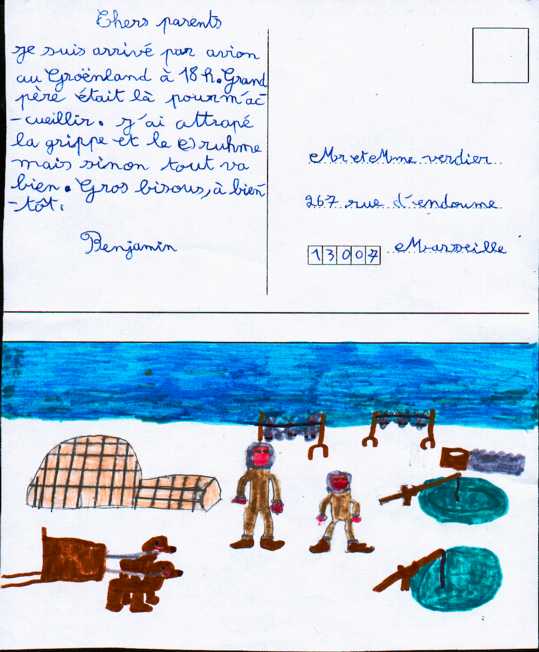 Chers parents
Je suis arrivé par avion
au Groënland à 18 h. Grand
père était là pour m'ac-
-cueillir. J'ai attrapé
la grippe et le ruhme
mais sinon tout va
bien. Gros bisous, à bien-
-tôt.
Benjamin
Mr et Mme verdier
267 rue d'endoume
13007 Marseille